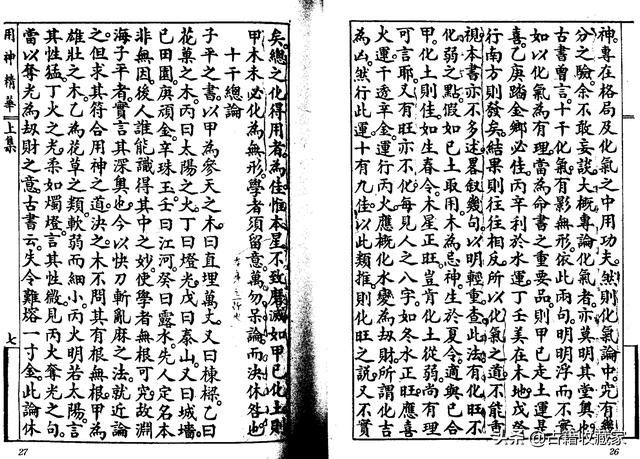 神。專在格局及化氣之中用功夫。然則化氣論中。究有幾
分之驗。余不敢妄談。大概專論化氣者。亦莫明其堂奧也。
古書曾言。十干化氣有影無形。依此兩句。明明浮而不實。
如以化氣為有理。當為命書之重要品。則甲已走土運是
喜。乙庚踏金鄉必佳。丙辛利於水運。丁壬美在木地。戊癸
行南方則發矣。結果則往往相反。所以化氣之道不能重
視。本書亦不多述。畧敘幾句。以明輕重。查此法有化旺不
化弱之點。假如已土取用木為忌神。生於夏令。適與已合
甲。化土則佳。如生春令。木星正旺。豈肯化土。從弱尚有理
可言耶。又有旺亦不化。每見人之八字。如冬水正旺。應喜
火運。干透辛金。運行丙火。應概化水。變為刼財。所謂化吉
為凶。然行此運。十有九佳。以此類推。則化旺之說。又不實
26
矣。總之化得用者。為佳。恒本星不致磨滅。如甲已化土。則
甲木未必化為無形。學者須留意。萬勿呆論而決休咎也
十干總論
子平之書。以甲為參天之木。曰直埋萬丈。又曰棟樑。乙曰
花菓之木。丙曰太陽之火。丁曰燈光。戊曰泰山。又曰城墻
已曰田園。庚頑金。辛珠玉。壬曰江河。癸曰露水。先人定名。本
非無因。後人誰能識得其中之妙。使學者無根可究。故淵
海子平者。實言其深奧也。今以快刀斬亂麻之法。就近論
之。但求其符合用神之道。決之木不問其有根無根。甲為
雄壯之木。乙為花草之類。軟弱而細小。丙火明若太陽。言
其性猛。丁火之光。柔如燭燈。言其性微。見丙火奪光之句。
當以奪光為刼財之意。古書云。失令難一寸金。此論休
用神精華 上集 七
27
头条 @古籍收藏家